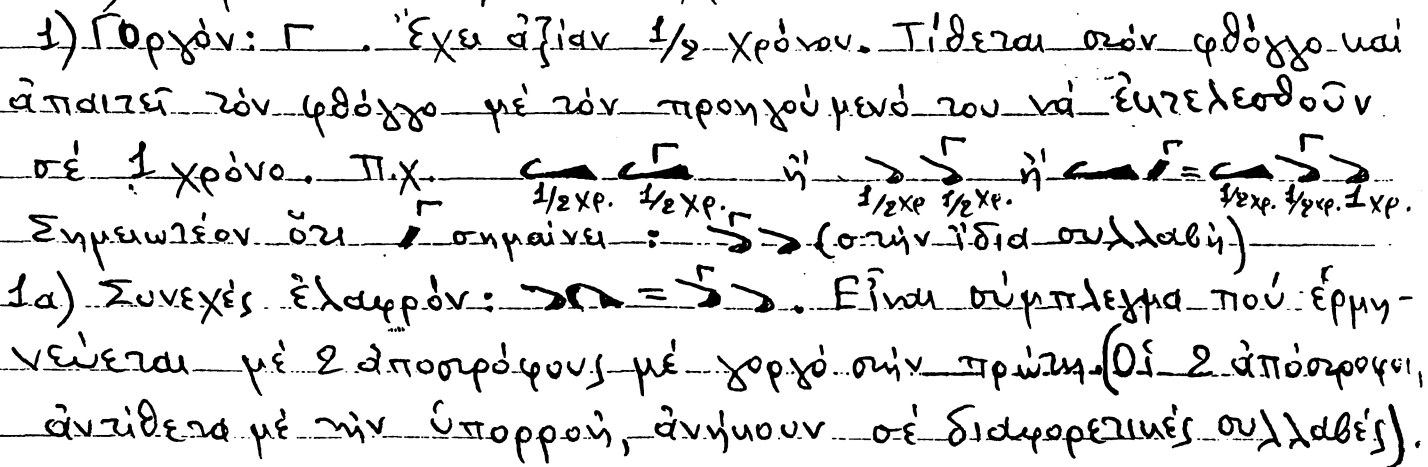 1) Γοργόν: Γ . Ἔχει ἀξίαν 1/2 χρόνου. Τίθεται στόν φθόγγο καί
ἀπαιτεῖ τόν φθόγγο μέ τόν προηγούμενό του νά ἐκτελεσθοῦν
σέ 1 χρόνο. Π.χ. ἤ ἤ =
1/2 χρ. 1/2 χρ. 1/2 χρ 1/2 χρ. 1/2 χρ. 1/2 χρ. 1 χρ.
Σημειωτέον ὅτι σημαίνει : (στήν ἴδια συλλαβή)
1α) Συνεχές ἐλαφρόν: = . Εἶναι σύμπλεγμα πού ἑρμη-
νεύεται μέ 2 ἀποστρόφους μέ γοργό στήν πρώτη. (Οἱ 2 ἀπόστροφοι,
ἀντίθετα μέ τήν ὑπορροή, ἀνήκουν σέ διαφορετικές συλλαβές).